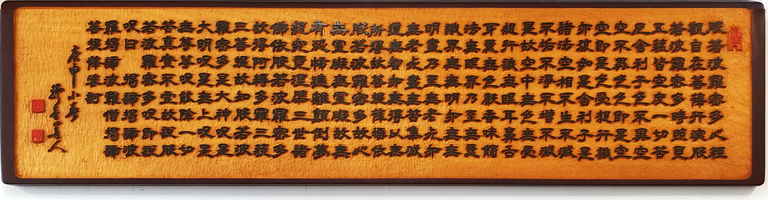 般若波羅密多心經
觀自在菩薩行深般
若波羅密多時照見
五蘊皆空度一切苦
厄舍利子色不異空
空不異色色即是空
空即是色受想行識
亦復如是舍利子是
諸法空相不生不滅
不垢不淨不增不減
是故空中無色無受
想行識無眼耳鼻舌
身意無色聲香味觸
法無眼界乃至無意
識界無無明亦無無
明盡乃至無老死亦
無老死盡無苦集滅
道無智亦無得以無
所得故菩提薩埵依
般若波羅密多故心
無罣礙無罣礙故無
有恐怖遠離顚倒夢
想究竟涅槃三世諸
佛依般若波羅密多
故得阿耨多羅三藐
三菩提故知般若波
羅密多是大神呪是
大明呪是無上呪是
無等等呪能除一切
苦眞實不虛故說般
若波羅密多呪即說
呪曰揭諦揭諦波
羅揭諦波羅僧揭諦
菩提薩婆訶
庚申小春